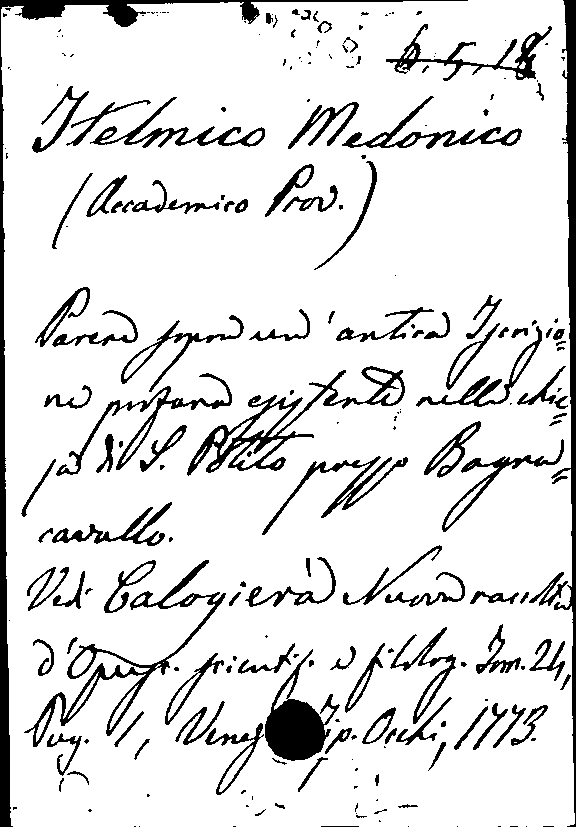 6. 5. 18
Itelmico Medonico
(Accademico Prov.)
Parere sopra un' antica Iscrizio=
ne profana esistente nella chie=
sa di S. Potito presso Bagna=
cavallo.
Vedi Calogierà Nuova raccolta
d'Opusc. scientif. e filolog. Tom. 24,
Pag. 1, Venez Tip. Occhi, 1773.